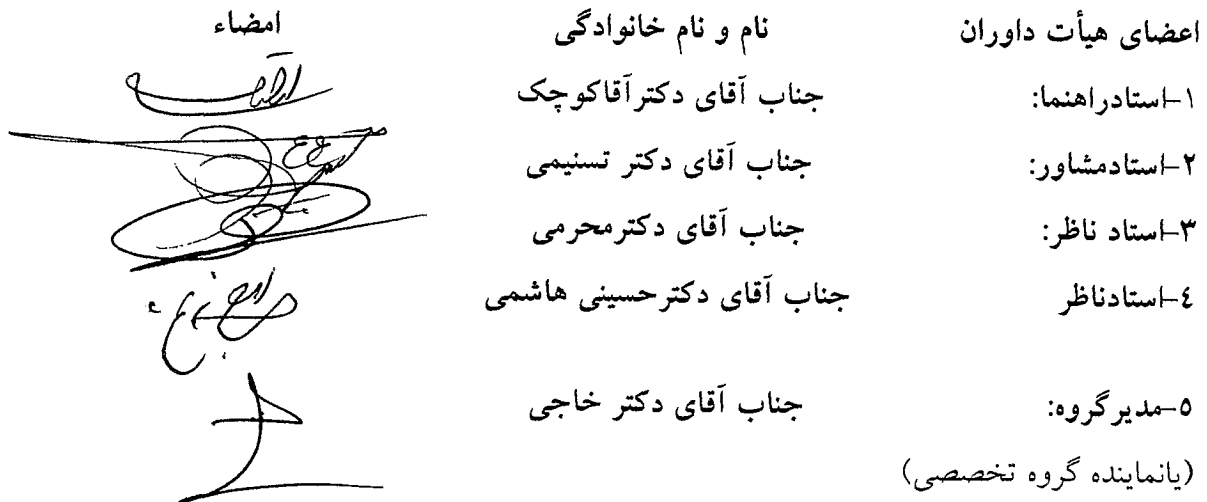 اعضای هیأت داوران نام و نام خانوادگی امضاء
۱-استادراهنما: جناب آقای دکترآقاکوچک
۲-استادمشاور: جناب آقای دکتر تسنیمی
۳-استاد ناظر: جناب آقای دکترمحرمی
٤-استادناظر جناب آقای دکترحسینی هاشمی
٥-مدیرگروه: جناب آقای دکتر خاجی
(یانماینده گروه تخصصی)